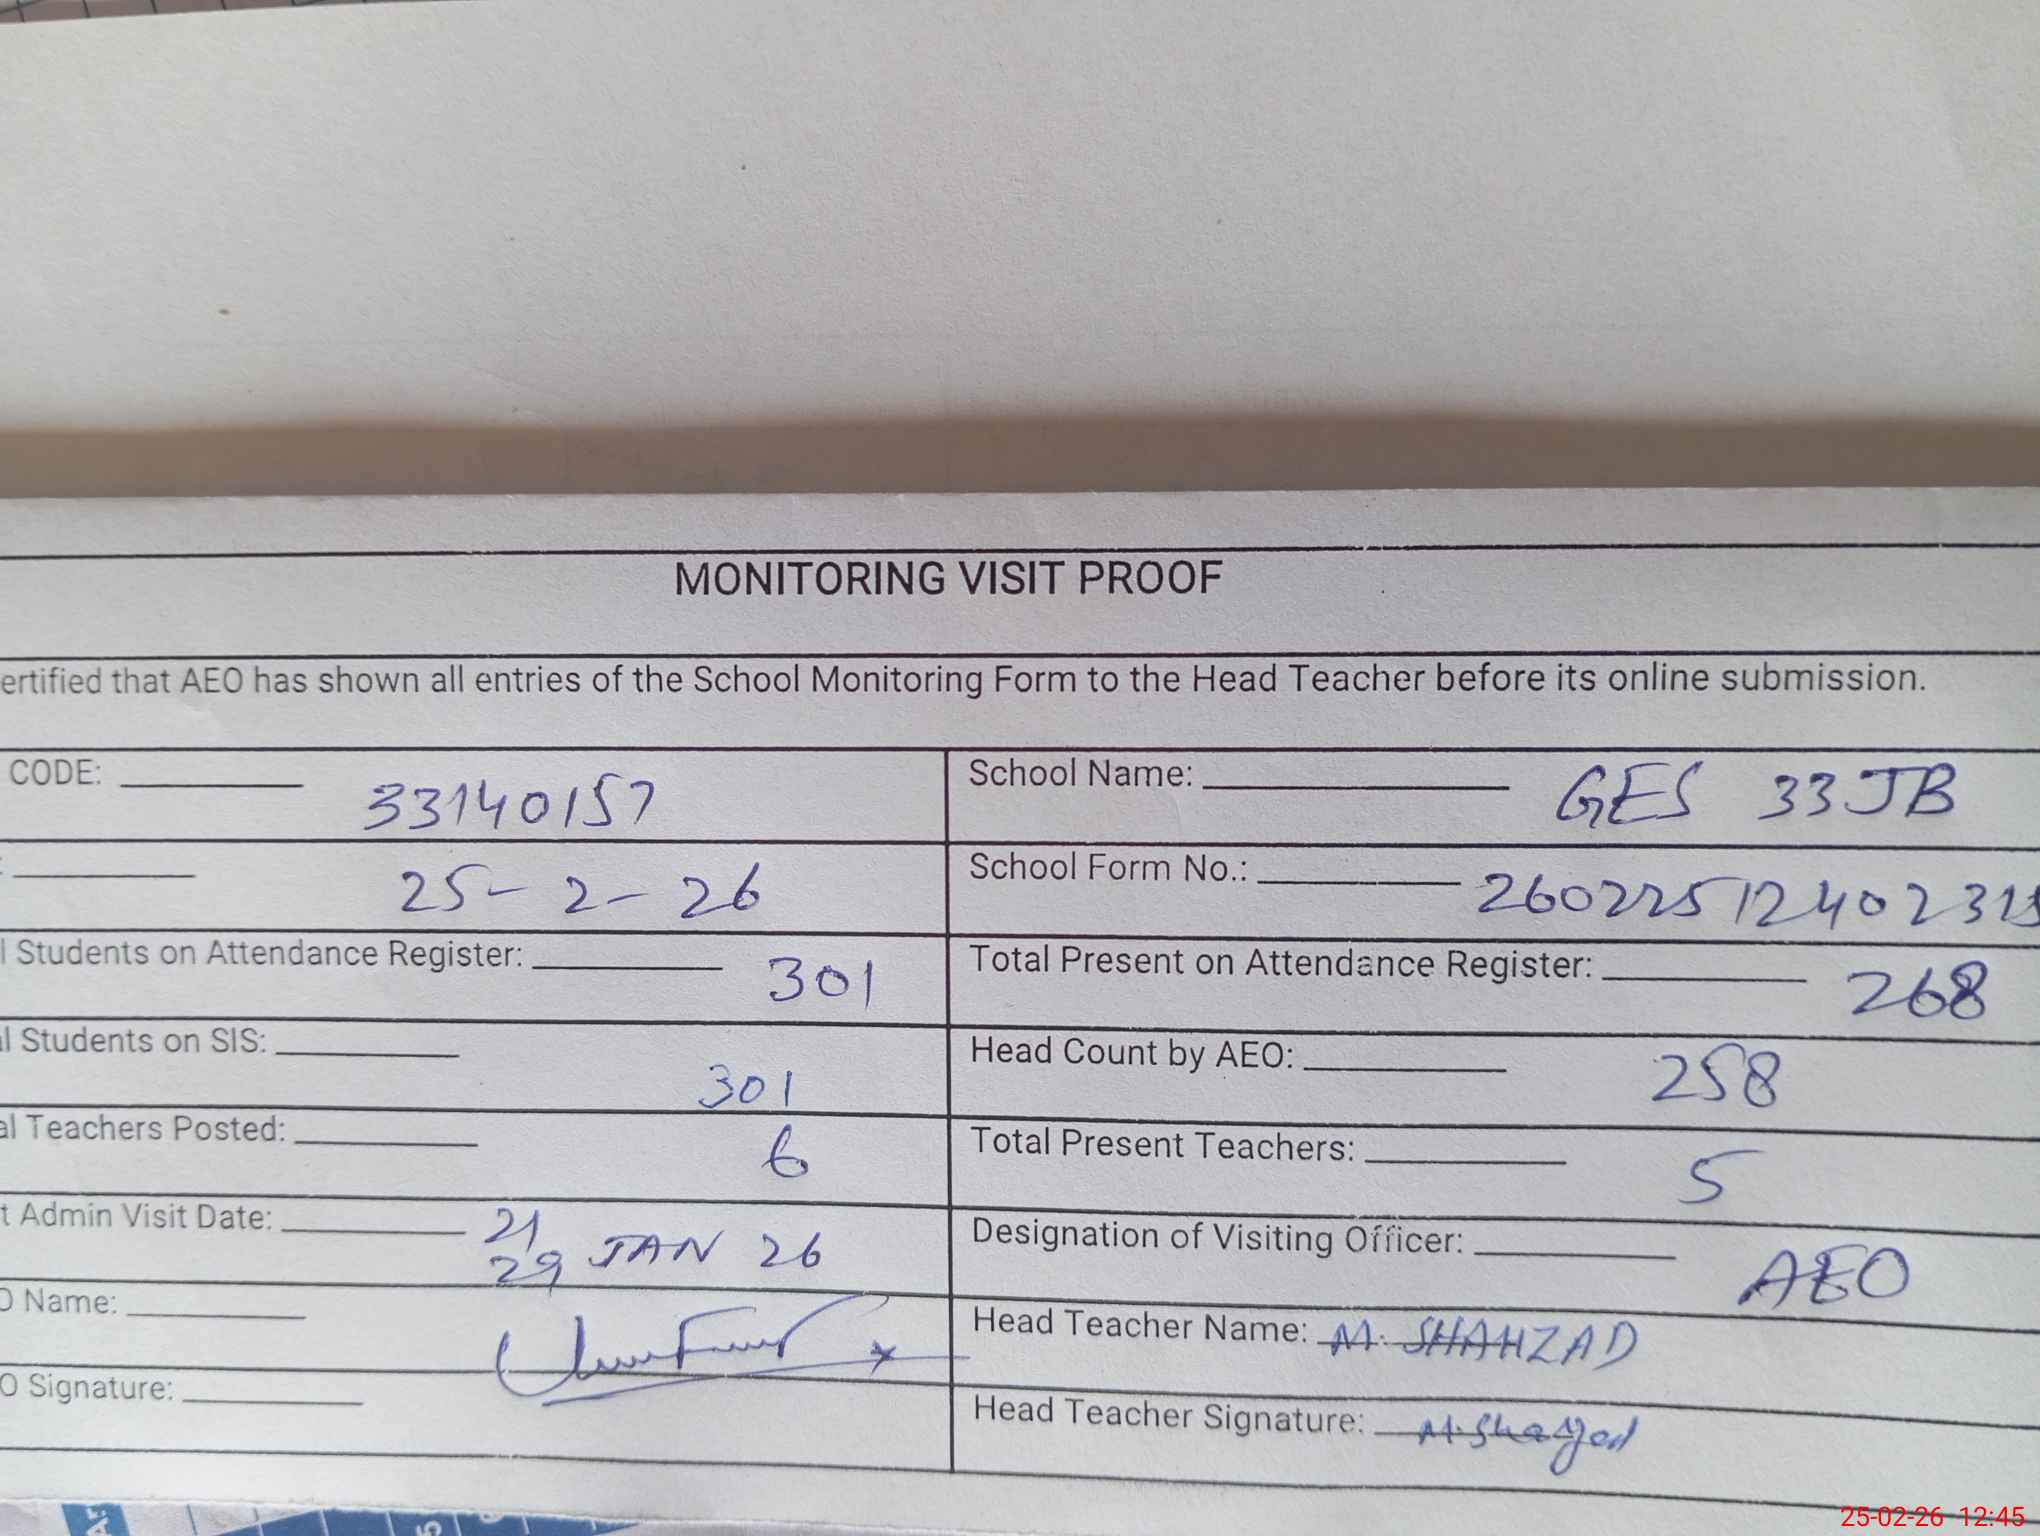 MONITORING VISIT PROOF
ertified that AEO has shown all entries of the School Monitoring Form to the Head Teacher before its online submission.
CODE: 33140157
School Name: GES 33JB
25-2-26
School Form No.: 260225124023
l Students on Attendance Register: 301
Total Present on Attendance Register: 268
al Students on SIS: 301
Head Count by AEO: 258
al Teachers Posted: 6
Total Present Teachers: 5
t Admin Visit Date: 21
29 JAN 26
Designation of Visiting Officer: AEO
O Name:
Head Teacher Name: M. SHAHZAD
O Signature:
Head Teacher Signature: M.Shahzad
25-02-26 12:45